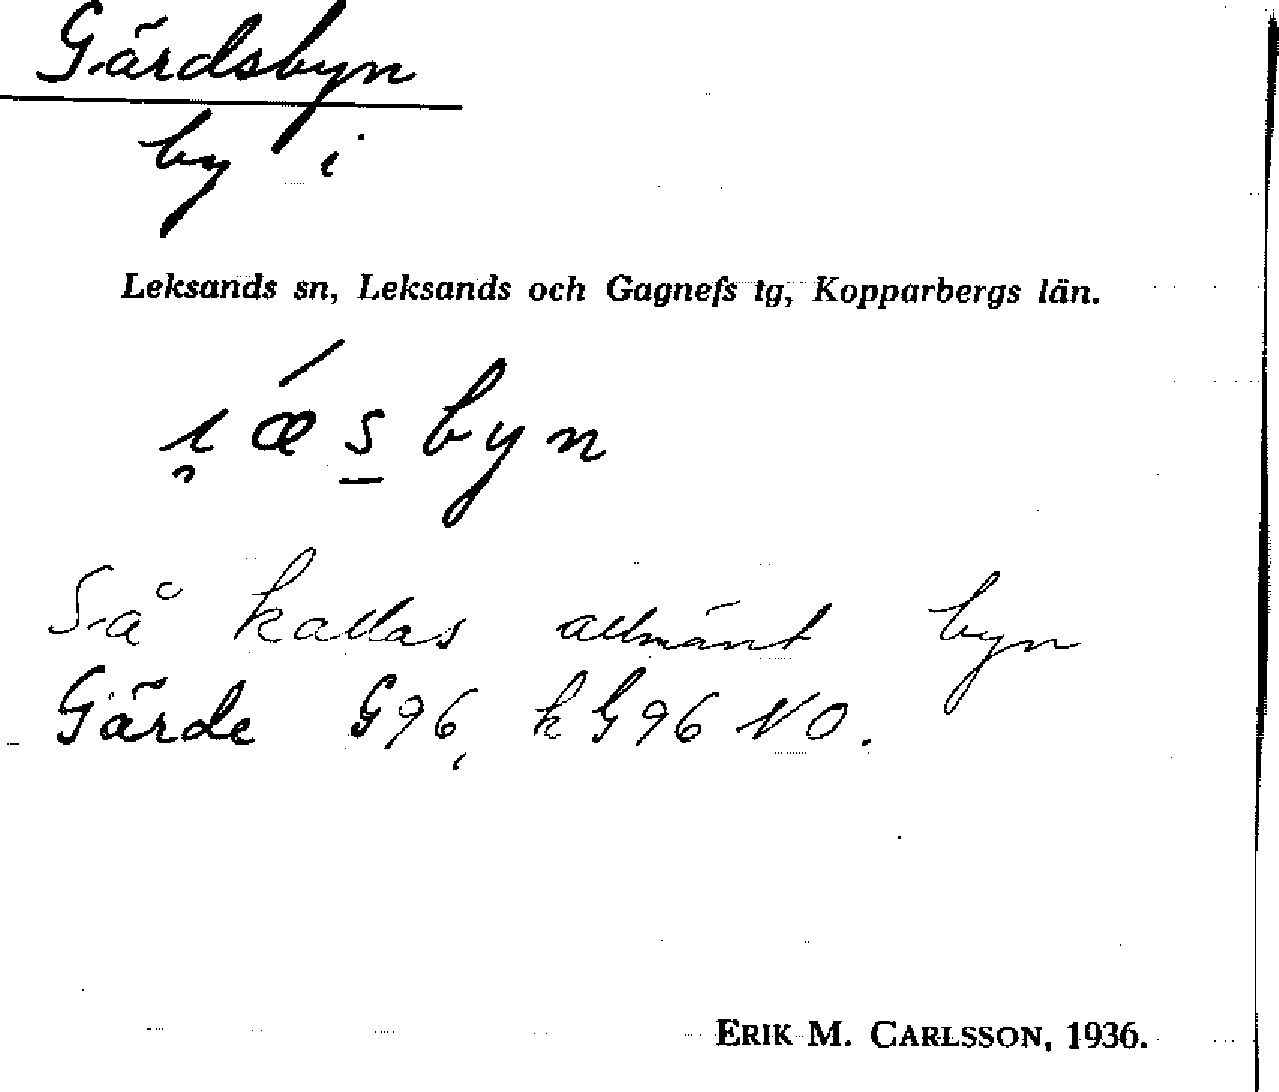 Gärdsbyn
by i
Leksands sn, Leksands och Gagnefs tg, Kopparbergs län.
Så kallas allmänt byn
Gärde G96, kG96 NO.
ERIK M. CARLSSON, 1936.